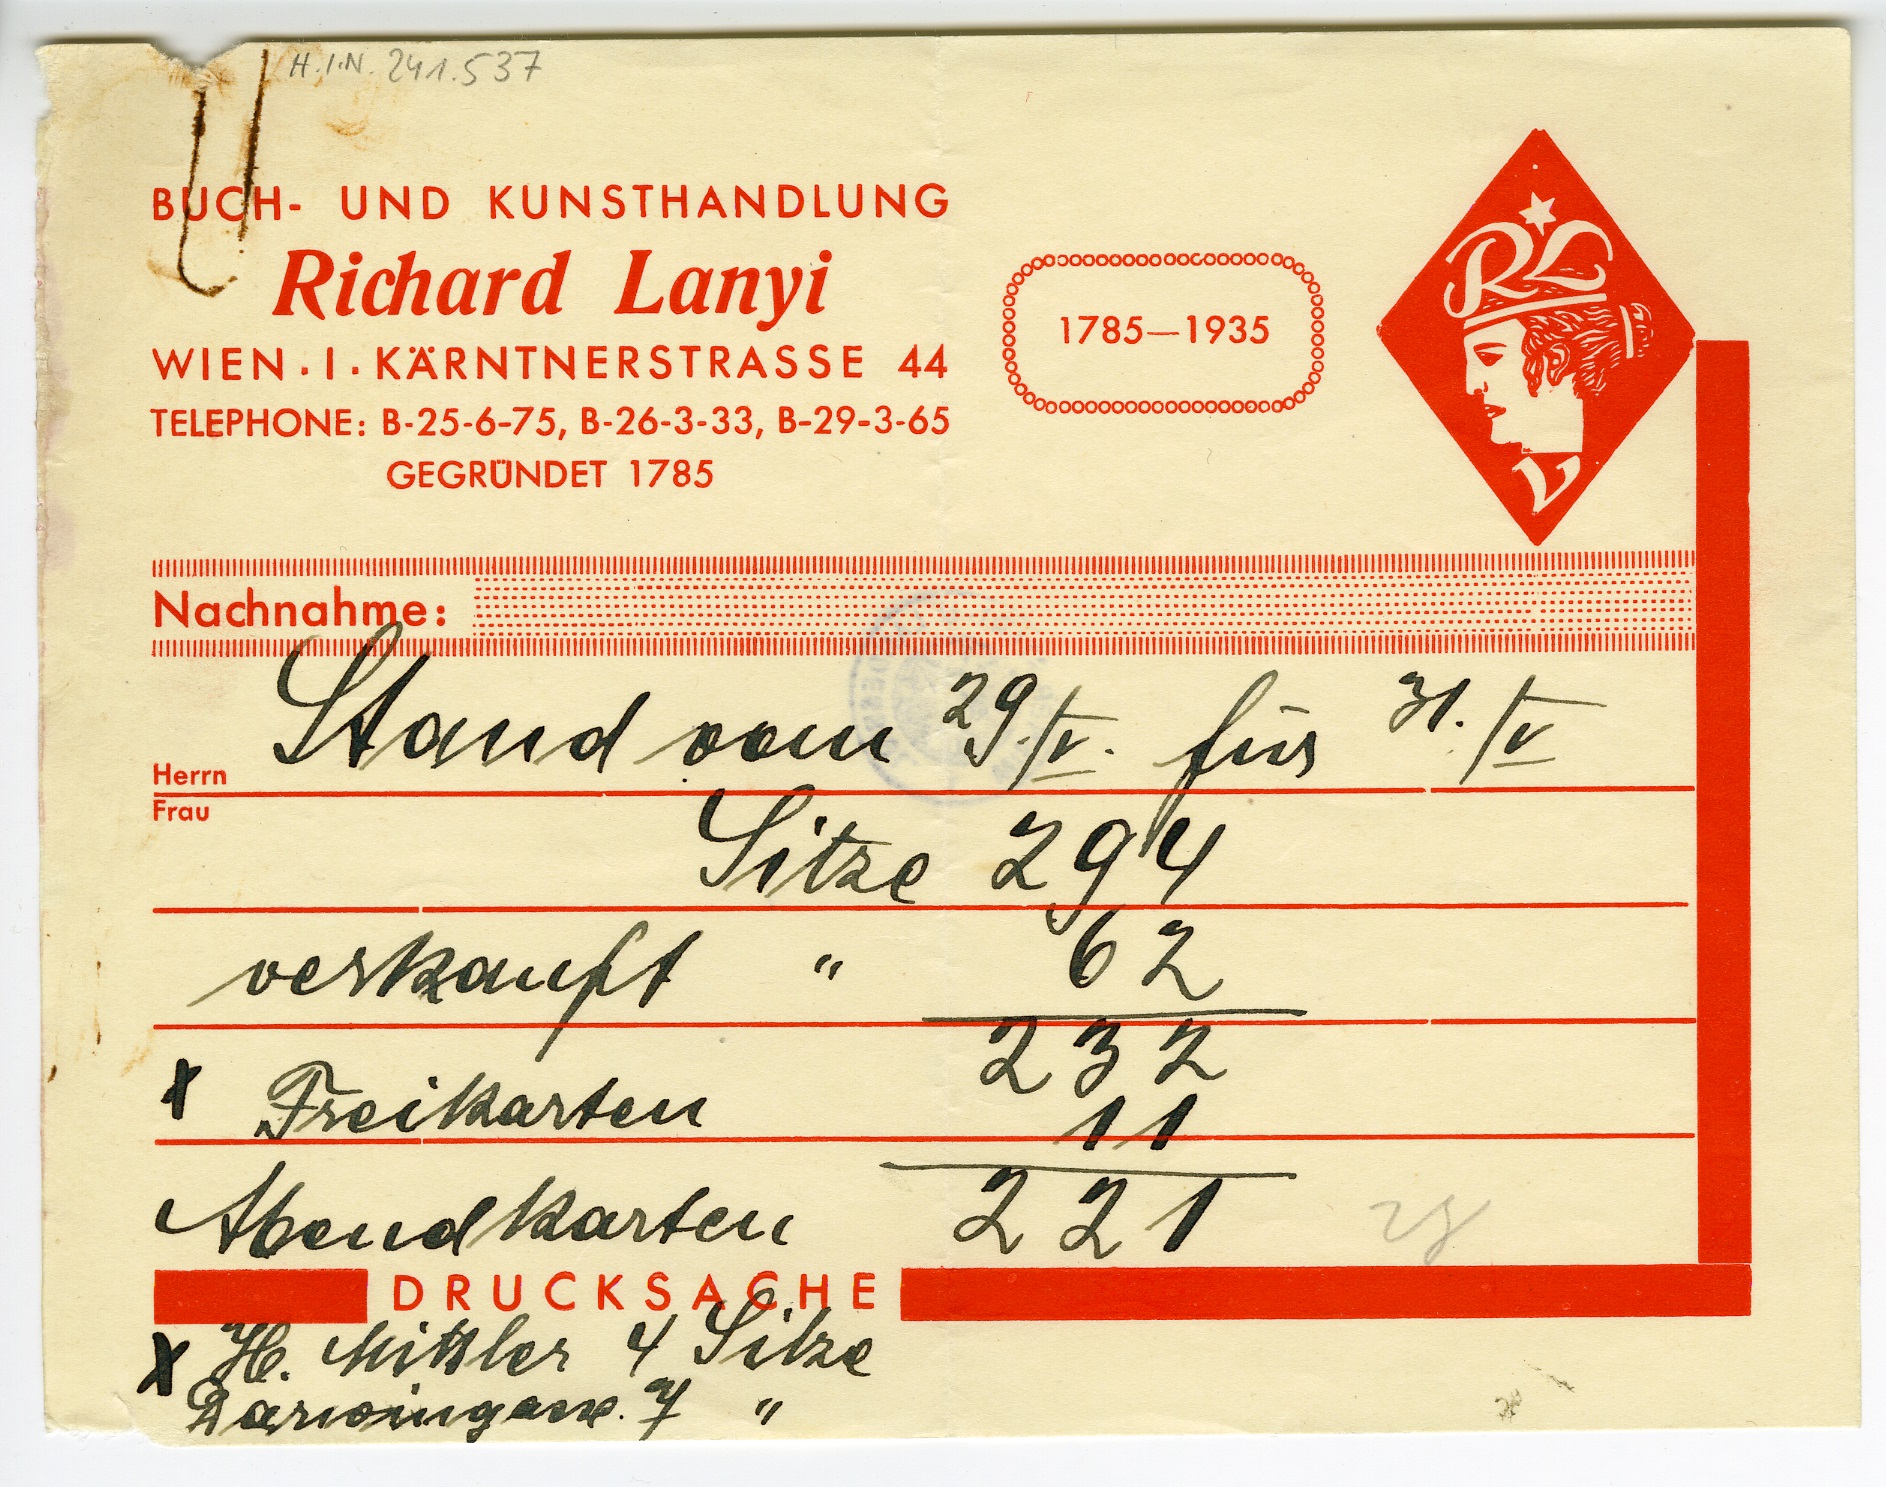 H.I.N. 241.537
BUCH- UND KUNSTHANDLUNG
Richard Lanyi
WIEN . I . KÄRNTNERSTRASSE 44
TELEPHONE: B-25-6-75, B-26-3-33, B-29-3-65
GEGRÜNDET 1785
1785—1935
RL
V
Nachnahme:
Stand vom 29./V. für 31./V
Herrn
Frau
Sitze 294
verkauft " 62
232
x Freikarten 11
Abendkarten 221
DRUCKSACHE
x H. Mittler 4 Sitze
Darwingasse. 7 "